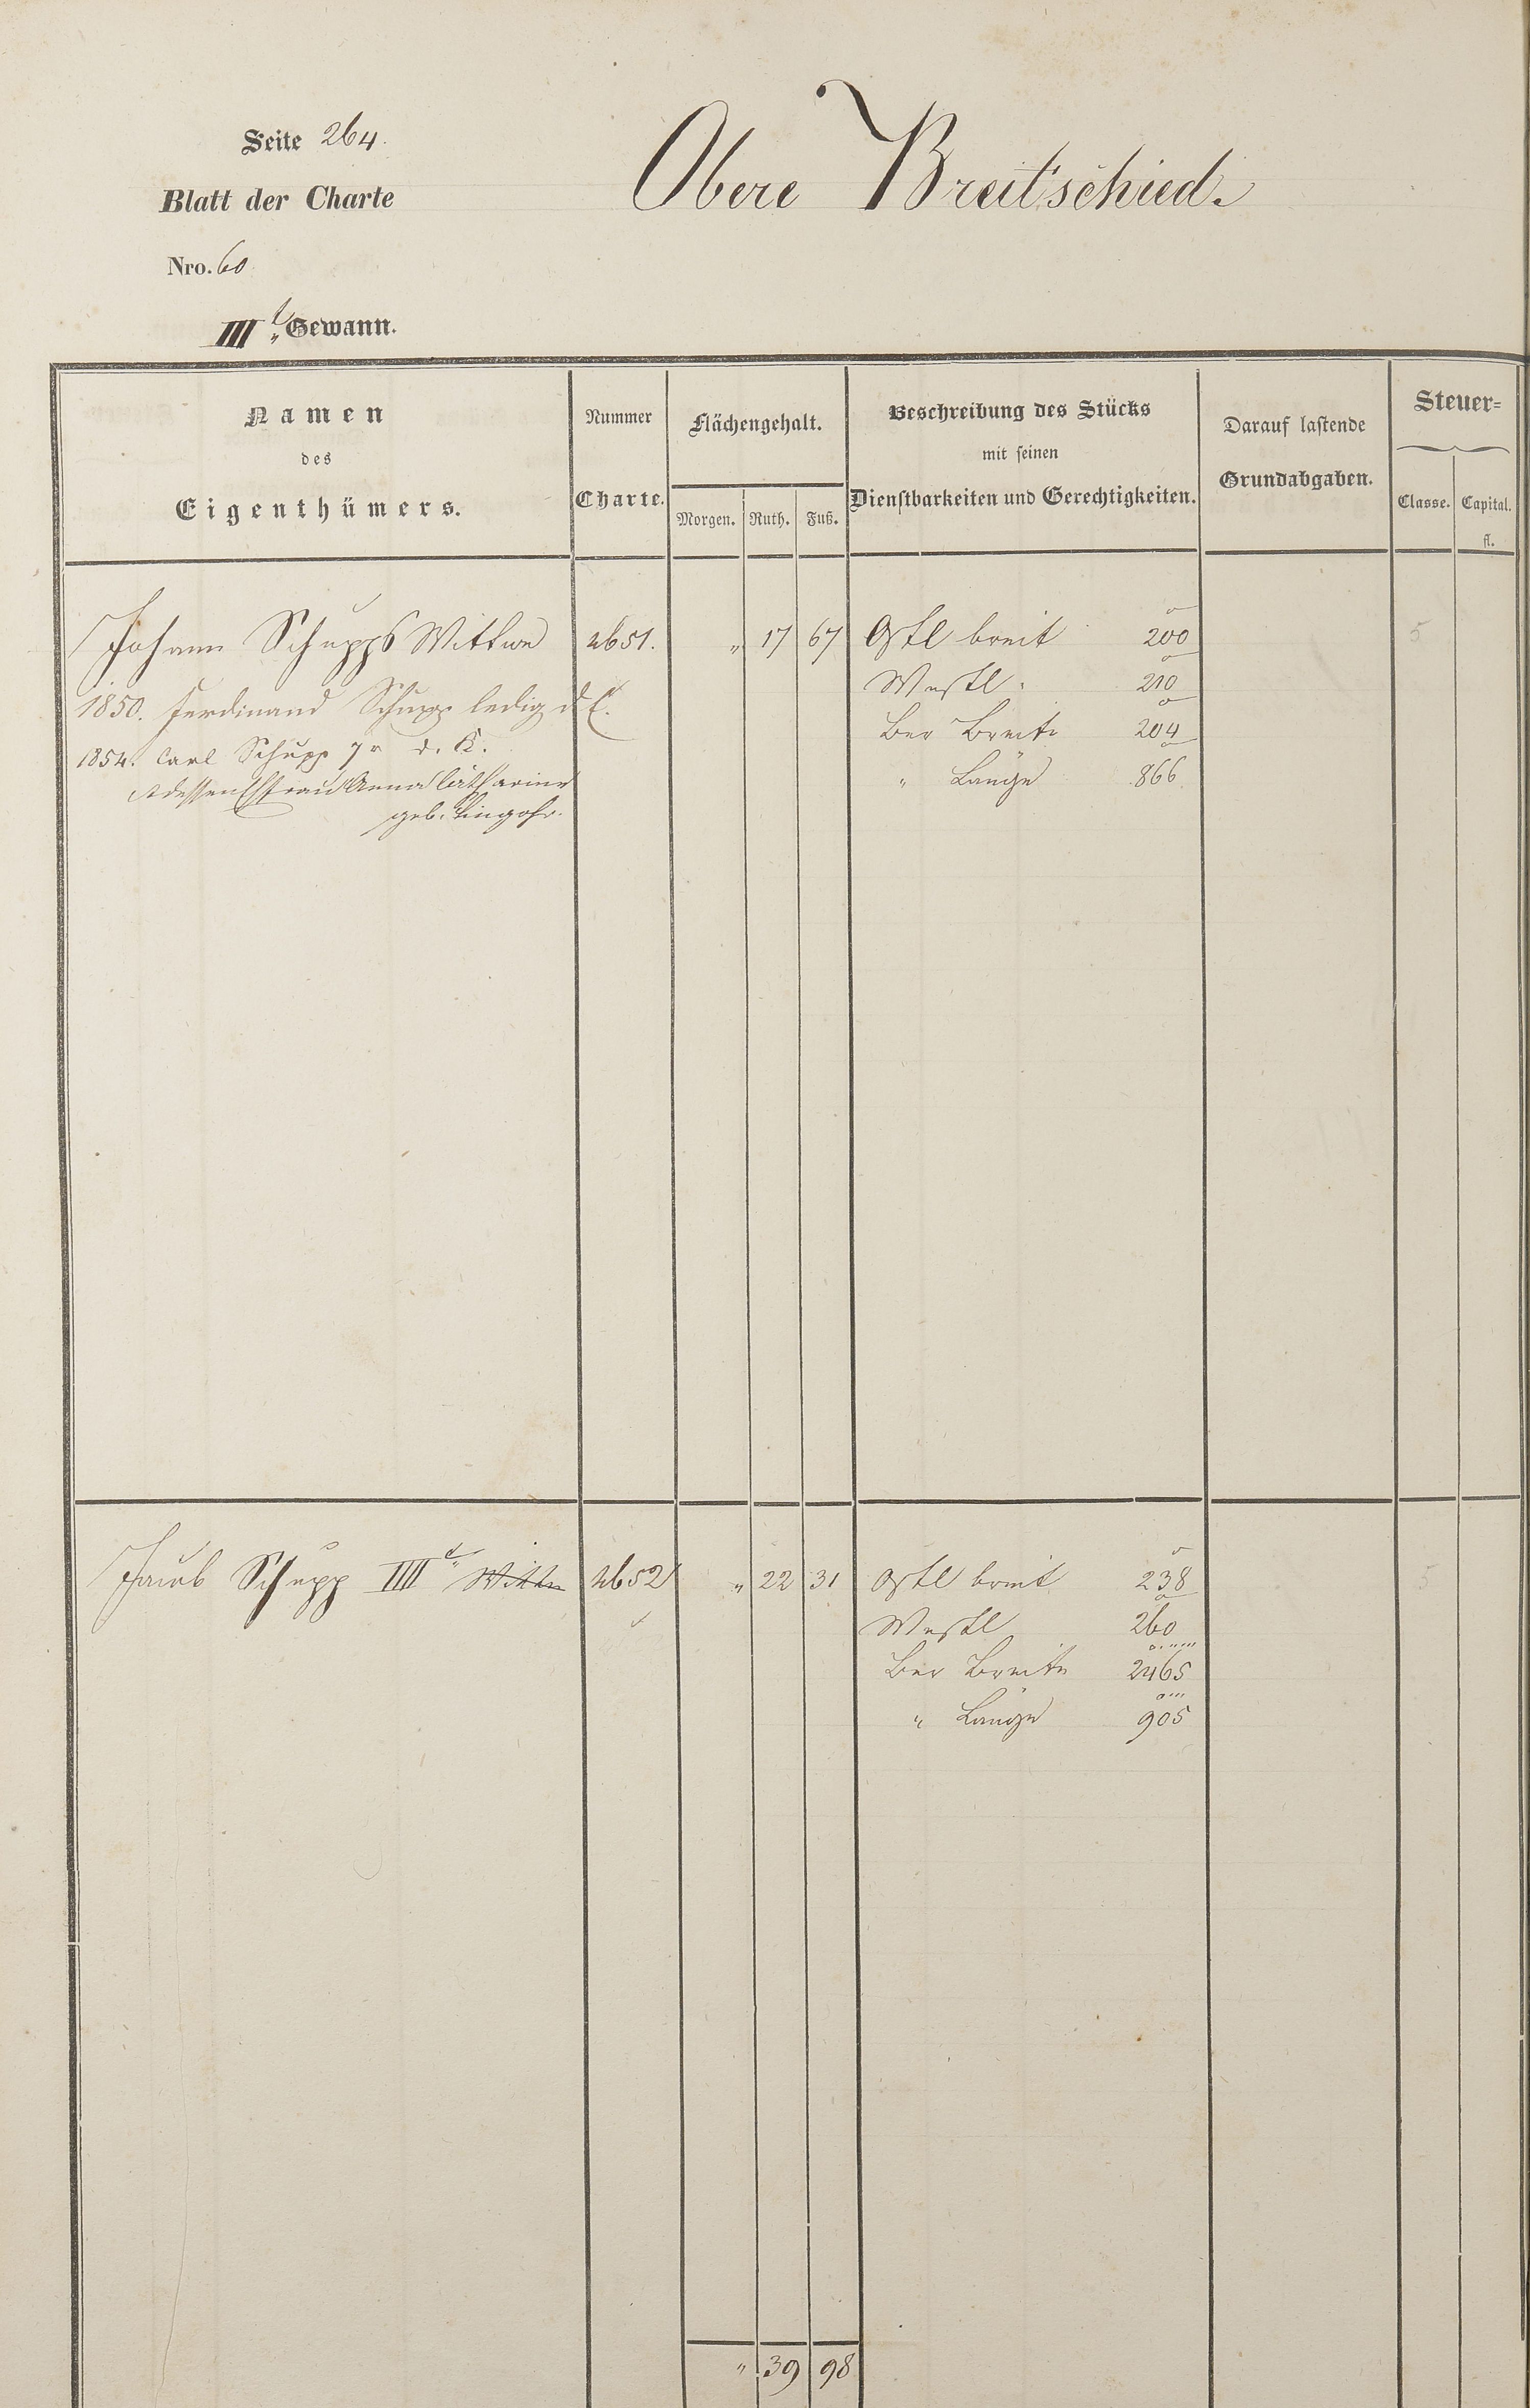 Seite 264.
Obere Breitschied.
Blatt der Charte
Nro. 60
IIIt Gewann.
Namen
des
Eigenthümers.
Nummer
Charte.
Flächengehalt.
Morgen. Ruth. Fuß.
Beschreibung des Stücks
mit seinen
Dienstbarkeiten und Gerechtigkeiten.
Darauf lastende
Grundabgaben.
Steuer=
Classe. Capital.
fl.
Johann Schupps Wittwe 2651. " 17 67 Östl breit 200 5
1850. Ferdinand Schupp ledig d. C. Westl " 210
1854. Carl Schupp 7r d. K. Ber Breite 204
" Länge 866
dessen Ehfrau Anna Catharine
geb.
Jacob Schupp IIIIt Wittw 2652 " 22 31 Östl breit 238 5
Westl 260
Ber Breite 2465
" Länge 905
" 39 98